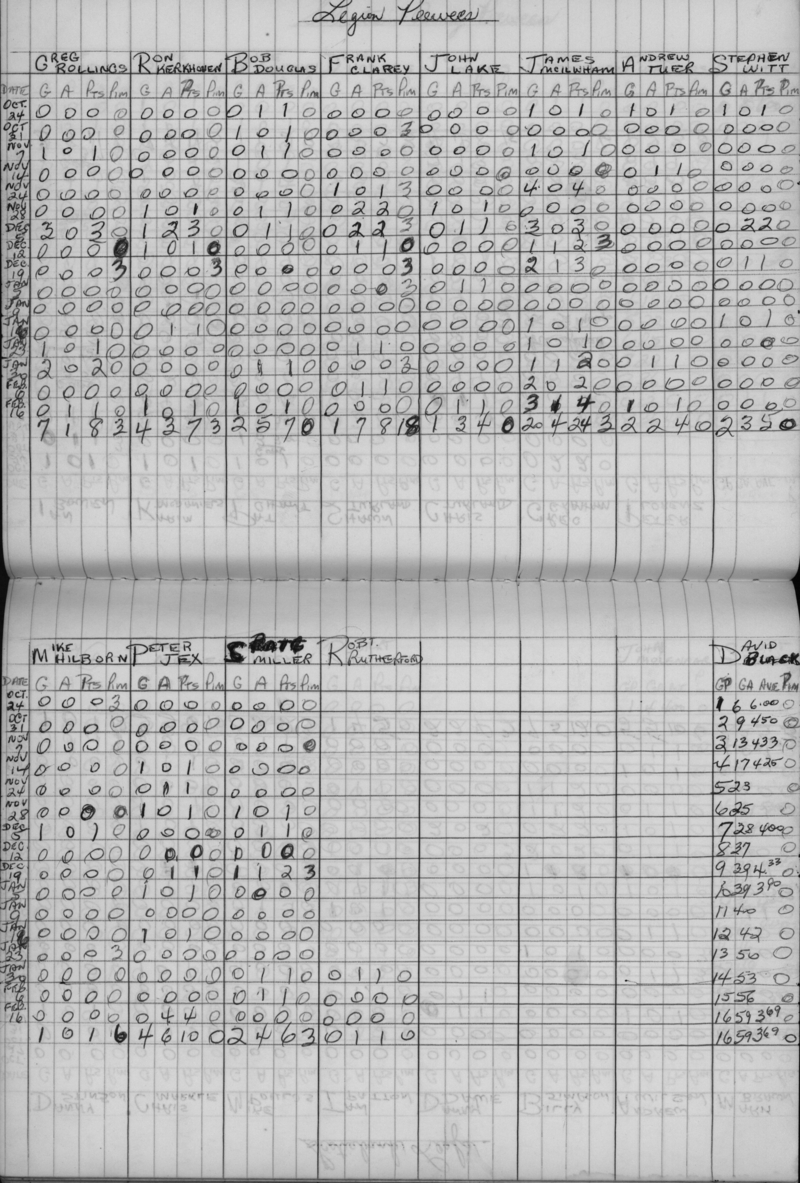 Legion Peewees
GREG ROLLINGS RON KERKHOVEN BOB DOUGLAS FRANK CLAREY JOHN LAKE JAMES MCILWHAM ANDREW TUER STEPHEN WITT
DATE G A Pts Pim G A Pts Pim G A Pts Pim G A Pts Pim G A Pts Pim G A Pts Pim G A Pts Pim G A Pts Pim
OCT. 24 0 0 0 0 0 0 0 0 0 1 1 0 0 0 0 0 0 0 0 0 1 0 1 0 1 0 1 0 1 0 1 0
OCT 31 0 0 0 0 0 0 0 0 1 0 1 0 0 0 0 3 0 0 0 0 0 0 0 0 0 0 0 0 0 0 0 0
NOV 7 1 0 1 0 0 0 0 0 0 1 1 0 0 0 0 0 0 0 0 0 1 0 1 0 0 0 0 0 0 0 0 0
NOV 14 0 0 0 0 0 0 0 0 0 0 0 0 0 0 0 0 0 0 0 0 0 0 0 0 0 1 1 0 0 0 0 0
NOV 24 0 0 0 0 0 0 0 0 0 0 0 0 1 0 1 3 0 0 0 0 4 0 4 0 0 0 0 0 0 0 0 0
NOV 28 0 0 0 0 1 0 1 0 0 1 1 0 0 2 2 0 1 0 1 0 0 0 0 0 0 0 0 0 0 0 0 0
DEC 5 3 0 3 0 1 2 3 0 0 1 1 0 0 2 2 3 0 1 1 0 3 0 3 0 0 0 0 0 0 2 2 0
DEC 12 0 0 0 0 1 0 1 0 0 0 0 0 0 1 1 0 0 0 0 0 1 1 2 3 0 0 0 0 0 0 0 0
DEC 19 0 0 0 3 0 0 0 3 0 0 0 0 0 0 0 3 0 0 0 0 2 1 3 0 0 0 0 0 0 1 1 0
JAN 0 0 0 0 0 0 0 0 0 0 0 0 0 0 0 3 0 1 1 0 0 0 0 0 0 0 0 0 0 0 0 0
JAN 9 0 0 0 0 0 0 0 0 0 0 0 0 0 0 0 0 0 0 0 0 0 0 0 0 0 0 0 0 0 0 0 0
JAN 0 0 0 0 0 1 1 0 0 0 0 0 0 0 0 0 0 0 0 0 1 0 1 0 0 0 0 0 1 0 1 0
JAN 23 1 0 1 0 0 0 0 0 0 0 0 0 0 1 1 0 0 0 0 0 1 0 1 0 0 0 0 0 0 0 0 0
JAN 30 2 0 2 0 0 0 0 0 0 1 1 0 0 0 0 3 0 0 0 0 1 1 2 0 0 1 1 0 0 0 0 0
FEB 6 0 0 0 0 0 0 0 0 0 0 0 0 0 1 1 0 0 0 0 0 2 0 2 0 0 0 0 0 0 0 0 0
FEB. 16 0 1 1 0 1 0 1 0 1 0 1 0 0 0 0 0 0 1 1 0 3 1 4 0 1 0 1 0 0 0 0 0
7 1 8 3 4 3 7 3 2 5 7 0 1 7 8 18 1 3 4 0 20 4 24 3 2 2 4 0 2 3 5 0
MIKE HILBORN PETER JEX MILLER ROBT. RUTHERFORD DAVID BLACK
DATE G A Pts Pim G A Pts Pim G A Pts Pim GP GA AVE Pim
OCT. 24 0 0 0 3 0 0 0 0 0 0 0 0 1 6 6.00 0
OCT 31 0 0 0 0 0 0 0 0 0 0 0 0 2 9 450 0
NOV 7 0 0 0 0 0 0 0 0 0 0 0 0 3 13 433 0
NOV 14 0 0 0 0 1 0 1 0 0 0 0 0 4 17 425 0
NOV 24 0 0 0 0 0 1 1 0 0 0 0 0 5 23 0
NOV 28 0 0 0 0 1 0 1 0 1 0 1 0 6 25 0
DEC 5 1 0 1 0 0 0 0 0 0 1 1 0 7 28 400 0
DEC 12 0 0 0 0 0 0 0 0 0 0 0 0 8 37 0
DEC 19 0 0 0 0 0 1 1 0 1 1 2 3 9 39 4.33 0
JAN 0 0 0 0 1 0 1 0 0 0 0 0 10 39 390 0
JAN 9 0 0 0 0 0 0 0 0 0 0 0 0 11 40 0
JAN 0 0 0 0 1 0 1 0 0 0 0 0 12 42 0
JAN 23 0 0 0 3 0 0 0 0 0 0 0 0 13 50 0
JAN 30 0 0 0 0 0 0 0 0 0 1 1 0 0 1 1 0 14 53 0
FEB 6 0 0 0 0 0 0 0 0 0 1 1 0 0 0 0 0 15 56 0
FEB. 16 0 0 0 0 0 4 4 0 0 0 0 0 0 0 0 0 16 59 369 0
1 0 1 6 4 6 10 0 2 4 6 3 0 1 1 0 16 59 369 0